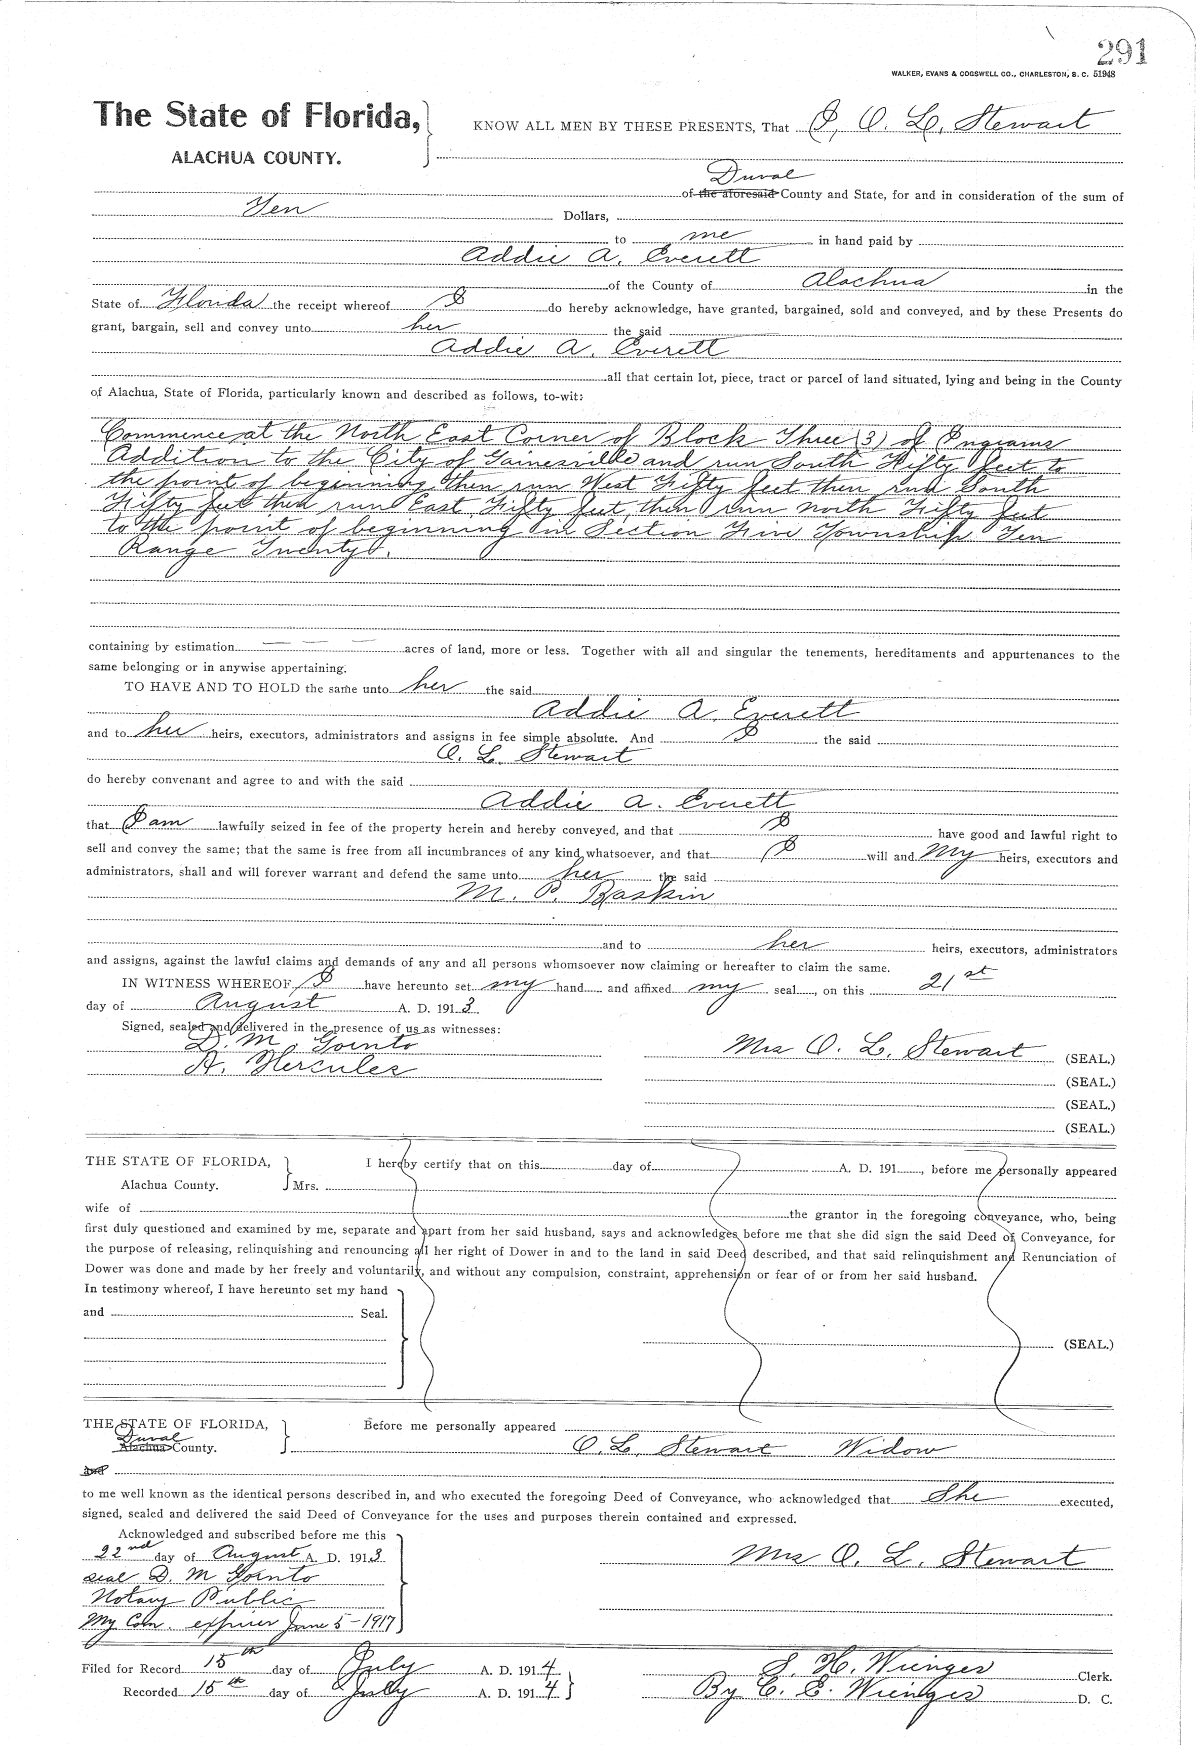 291
WALKER, EVANS & COGSWELL CO., CHARLESTON, S. C. 51948
The State of Florida,
ALACHUA COUNTY.
KNOW ALL MEN BY THESE PRESENTS, That I, O. L. Stewart
Duval
of the aforesaid County and State, for and in consideration of the sum of
Ten Dollars,
to me in hand paid by
Addie A. Everett
of the County of Alachua in the
State of Florida the receipt whereof I do hereby acknowledge, have granted, bargained, sold and conveyed, and by these Presents do
grant, bargain, sell and convey unto her the said
Addie A. Everett
all that certain lot, piece, tract or parcel of land situated, lying and being in the County
of Alachua, State of Florida, particularly known and described as follows, to-wit:
Commence at the North East Corner of Block Three (3) of Ingrams
Addition to the City of Gainesville and run South Fifty feet to
the point of beginning then run West Fifty feet then run South
Fifty feet then run East Fifty feet then run north Fifty feet
to the point of beginning in Section Five Township Ten
Range Twenty.
containing by estimation — — — acres of land, more or less. Together with all and singular the tenements, hereditaments and appurtenances to the
same belonging or in anywise appertaining.
TO HAVE AND TO HOLD the same unto her the said
Addie A. Everett
and to her heirs, executors, administrators and assigns in fee simple absolute. And I the said
O. L. Stewart
do hereby convenant and agree to and with the said
Addie A. Everett
that I am lawfully seized in fee of the property herein and hereby conveyed, and that I have good and lawful right to
sell and convey the same; that the same is free from all incumbrances of any kind whatsoever, and that I will and My heirs, executors and
administrators, shall and will forever warrant and defend the same unto her the said
M. P. Baskin
and to her heirs, executors, administrators
and assigns, against the lawful claims and demands of any and all persons whomsoever now claiming or hereafter to claim the same.
IN WITNESS WHEREOF, I have hereunto set my hand and affixed my seal, on this 21st
day of August A. D. 1913
Signed, sealed and delivered in the presence of us as witnesses:
D. M. Gornto
A. Hercules
Mrs O. L. Stewart (SEAL.)
(SEAL.)
(SEAL.)
(SEAL.)
THE STATE OF FLORIDA,
Alachua County.
I hereby certify that on this day of A. D. 191 , before me personally appeared
Mrs.
wife of the grantor in the foregoing conveyance, who, being
first duly questioned and examined by me, separate and apart from her said husband, says and acknowledges before me that she did sign the said Deed of Conveyance, for
the purpose of releasing, relinquishing and renouncing all her right of Dower in and to the land in said Deed described, and that said relinquishment and Renunciation of
Dower was done and made by her freely and voluntarily, and without any compulsion, constraint, apprehension or fear of or from her said husband.
In testimony whereof, I have hereunto set my hand
and Seal.
(SEAL.)
THE STATE OF FLORIDA,
Duval
Alachua County.
Before me personally appeared
O. L. Stewart Widow
and
to me well known as the identical persons described in, and who executed the foregoing Deed of Conveyance, who acknowledged that She executed,
signed, sealed and delivered the said Deed of Conveyance for the uses and purposes therein contained and expressed.
Acknowledged and subscribed before me this
22nd day of August A. D. 1913
seal D. M Gornto
Notary Public
My Com. expires June 5-1917
Mrs O. L. Stewart
Filed for Record 15th day of July A. D. 1914
Recorded 15th day of July A. D. 1914
S. H. Wienges Clerk.
By C. E. Wienges D. C.